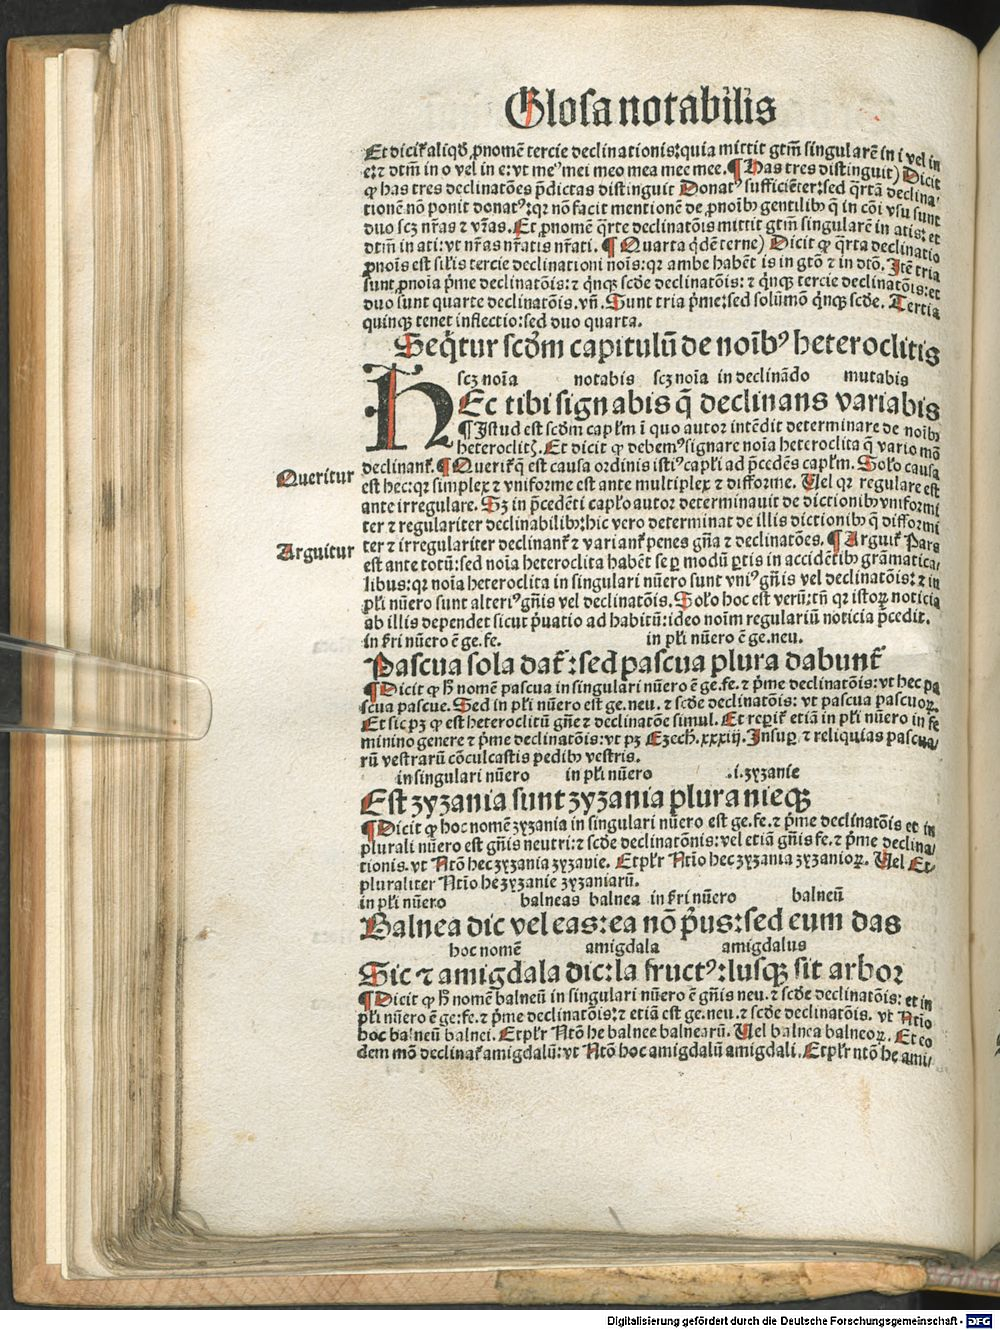 Glosa notabilis
Et dicit̉ aliqđ ꝓnomē tercie declinationis: quia mittit gtm̄ singularē in i vel in
e: ⁊ dtm̄ in o vel in e: vt meꝰ mei meo mea mee mee. ¶ Has tres distinguit) Dicit
ꝙ has tres declinatōes p̄dictas distinguit Donatꝰ sufficiēter: sed q̄rtā declina-
tionē nō ponit donatꝰ: qꝛ nō facit mentionē de ꝓnoīb gentilib q̄ in cōi vsu sunt
duo scꝫ nr̄as ⁊ vr̄as. Et ꝓnomē q̄rte declinatōis mittit gtm̄ singularē in atis: et
dtm̄ in ati: vt nr̄as nr̄atis nr̄ati. ¶ Quarta q̄dē terne) Dicit ꝙ q̄rta declinatio
ꝓnoīs est sil̓is tercie declinationi noīs: qꝛ ambe habēt is in gtō ⁊ in dtō. Itē tria
sunt ꝓnoīa p̄me declinatōis: ⁊ q̄nqꝫ scđe declinatōis: ⁊ q̄nqꝫ tercie declinatōis: et
duo sunt quarte declinatōis. vn̄. Sunt tria p̄me: sed solūmō q̄nqꝫ scđe. Tertia
quinqꝫ tenet inflectio: sed duo quarta.
Seq̄tur scđm capitulū de noībꝰ heteroclitis
scꝫ noīa notabis scꝫ noīa in declinādo mutabis
HEc tibi signabis q̄ declinans variabis
¶ Istud est scđm capl̓m ī quo autor intēdit determinare de noīb
heteroclitꝭ. Et dicit ꝙ debemꝰ signare noīa heteroclita q̄ vario mō
Queritur
declinant̉. ¶ Querit̉ q̄ est causa ordinis istiꝰ capl̓i ad p̄cedēs capl̓m. Sol̓o causa
est hec: qꝛ simplex ⁊ vniforme est ante multiplex ⁊ difforme. Vel qꝛ regulare est
ante irregulare. Sꝫ in p̄cedēti capl̓o autor determinauit de dictionib vniformi
ter ⁊ regulariter declinabilib: hic vero determinat de illis dictionib q̄ difformi
Arguitur
ter ⁊ irregulariter declinant̉ ⁊ variant̉ penes gn̄a ⁊ declinatōes. ¶ Arguit̉ Pars
est ante totū: sed noīa heteroclita habēt se ꝑ modū ꝑtis in accidētib grāmatica-
libus: qꝛ noīa heteroclita in singulari nūero sunt vniꝰ gn̄is vel declinatōis: ⁊ in
pl̓i nūero sunt alteriꝰ gn̄is vel declinatōis. Sol̓o hoc est verū: tn̄ qꝛ istoꝝ noticia
ab illis dependet sicut p̄uatio ad habitū: ideo noīm regulariū noticia p̄cedit.
in s̄ri nūero ē ge. fe. in pl̓i nūero ē ge. neu.
Pascua sola dat̉: sed pascua plura dabunt̉
¶ Dicit ꝙ h̄ nomē pascua in singulari nūero ē ge. fe. ⁊ p̄me declinatōis: vt hec pa
scua pascue. Sed in pl̓i nūero est ge. neu. ⁊ scđe declinatōis: vt pascua pascuoꝝ.
Et sic pꝫ ꝙ est heteroclitū gn̄e ⁊ declinatōe simul. Et reꝑit̉ etiā in pl̓i nūero in fe
minino genere ⁊ p̄me declinatōis: vt pꝫ Ezech. xxxiij. Insuꝑ ⁊ reliquias pascua-
rū vestrarū cōculcastis pedib vestris.
in singulari nūero in pl̓i nūero .i. zyzanie
Est zyzania sunt zyzania plura nieqꝫ
¶ Dicit ꝙ hoc nomē zyzania in singulari nūero est ge. fe. ⁊ p̄me declinatōis et in
plurali nūero est gn̄is neutri: ⁊ scđe declinatōnis: vel etiā gn̄is fe. ⁊ p̄me declina-
tionis. vt Ntō hec zyzania zyzanie. Et pl̓r Ntīo hec zyzania zyzanioꝝ. Vel Et-
pluraliter Ntīo he zyzanie zyzaniarū.
in pl̓i nūero balneas balnea in s̄ri nūero balneū
Balnea dic vel eas: ea nō p̄us: sed eum das
hoc nomē amigdala amigdalus
Sic ⁊ amigdala dic: la fructꝰ: lusqꝫ sit arbor
¶ Dicit ꝙ h̄ nomē balneū in singulari nūero ē gn̄is neu. ⁊ scđe declinatōis: et in
pl̓i nūero ē ge: fe. ⁊ p̄me declinatōis: ⁊ etiā est ge. neu. ⁊ scđe declinatōis. vt Ntīo
hoc balneū balnei. Et pl̓r Ntō he balnee balnearū. Vel balnea balneoꝝ. Et eo
dem mō declinat̉ amigdalū: vt Ntō hoc amigdalū amigdali. Et pl̓r ntō he ami-
Digitalisierung gefördert durch die Deutsche Forschungsgemeinschaft - DFG